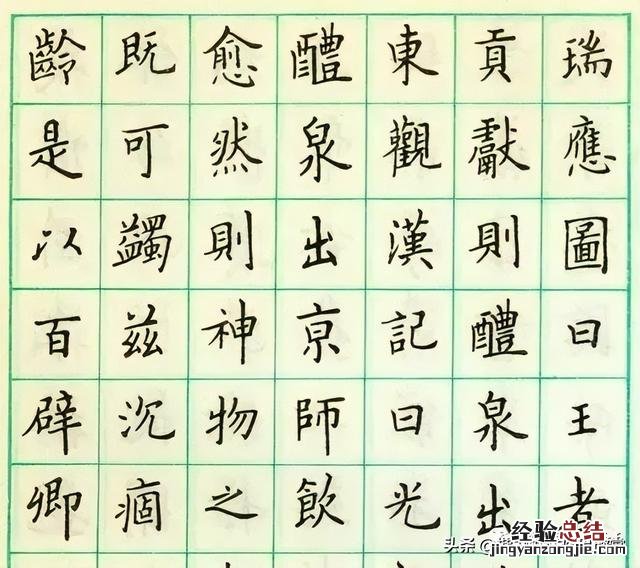 瑞應圖曰王者
貢獻則醴泉出
東觀漢記曰光
醴泉出亰師飲
愈然則神物之
既可蠲茲沉痼
齡是以百辟卿
经验总结
头条
jingyanzongjie.com